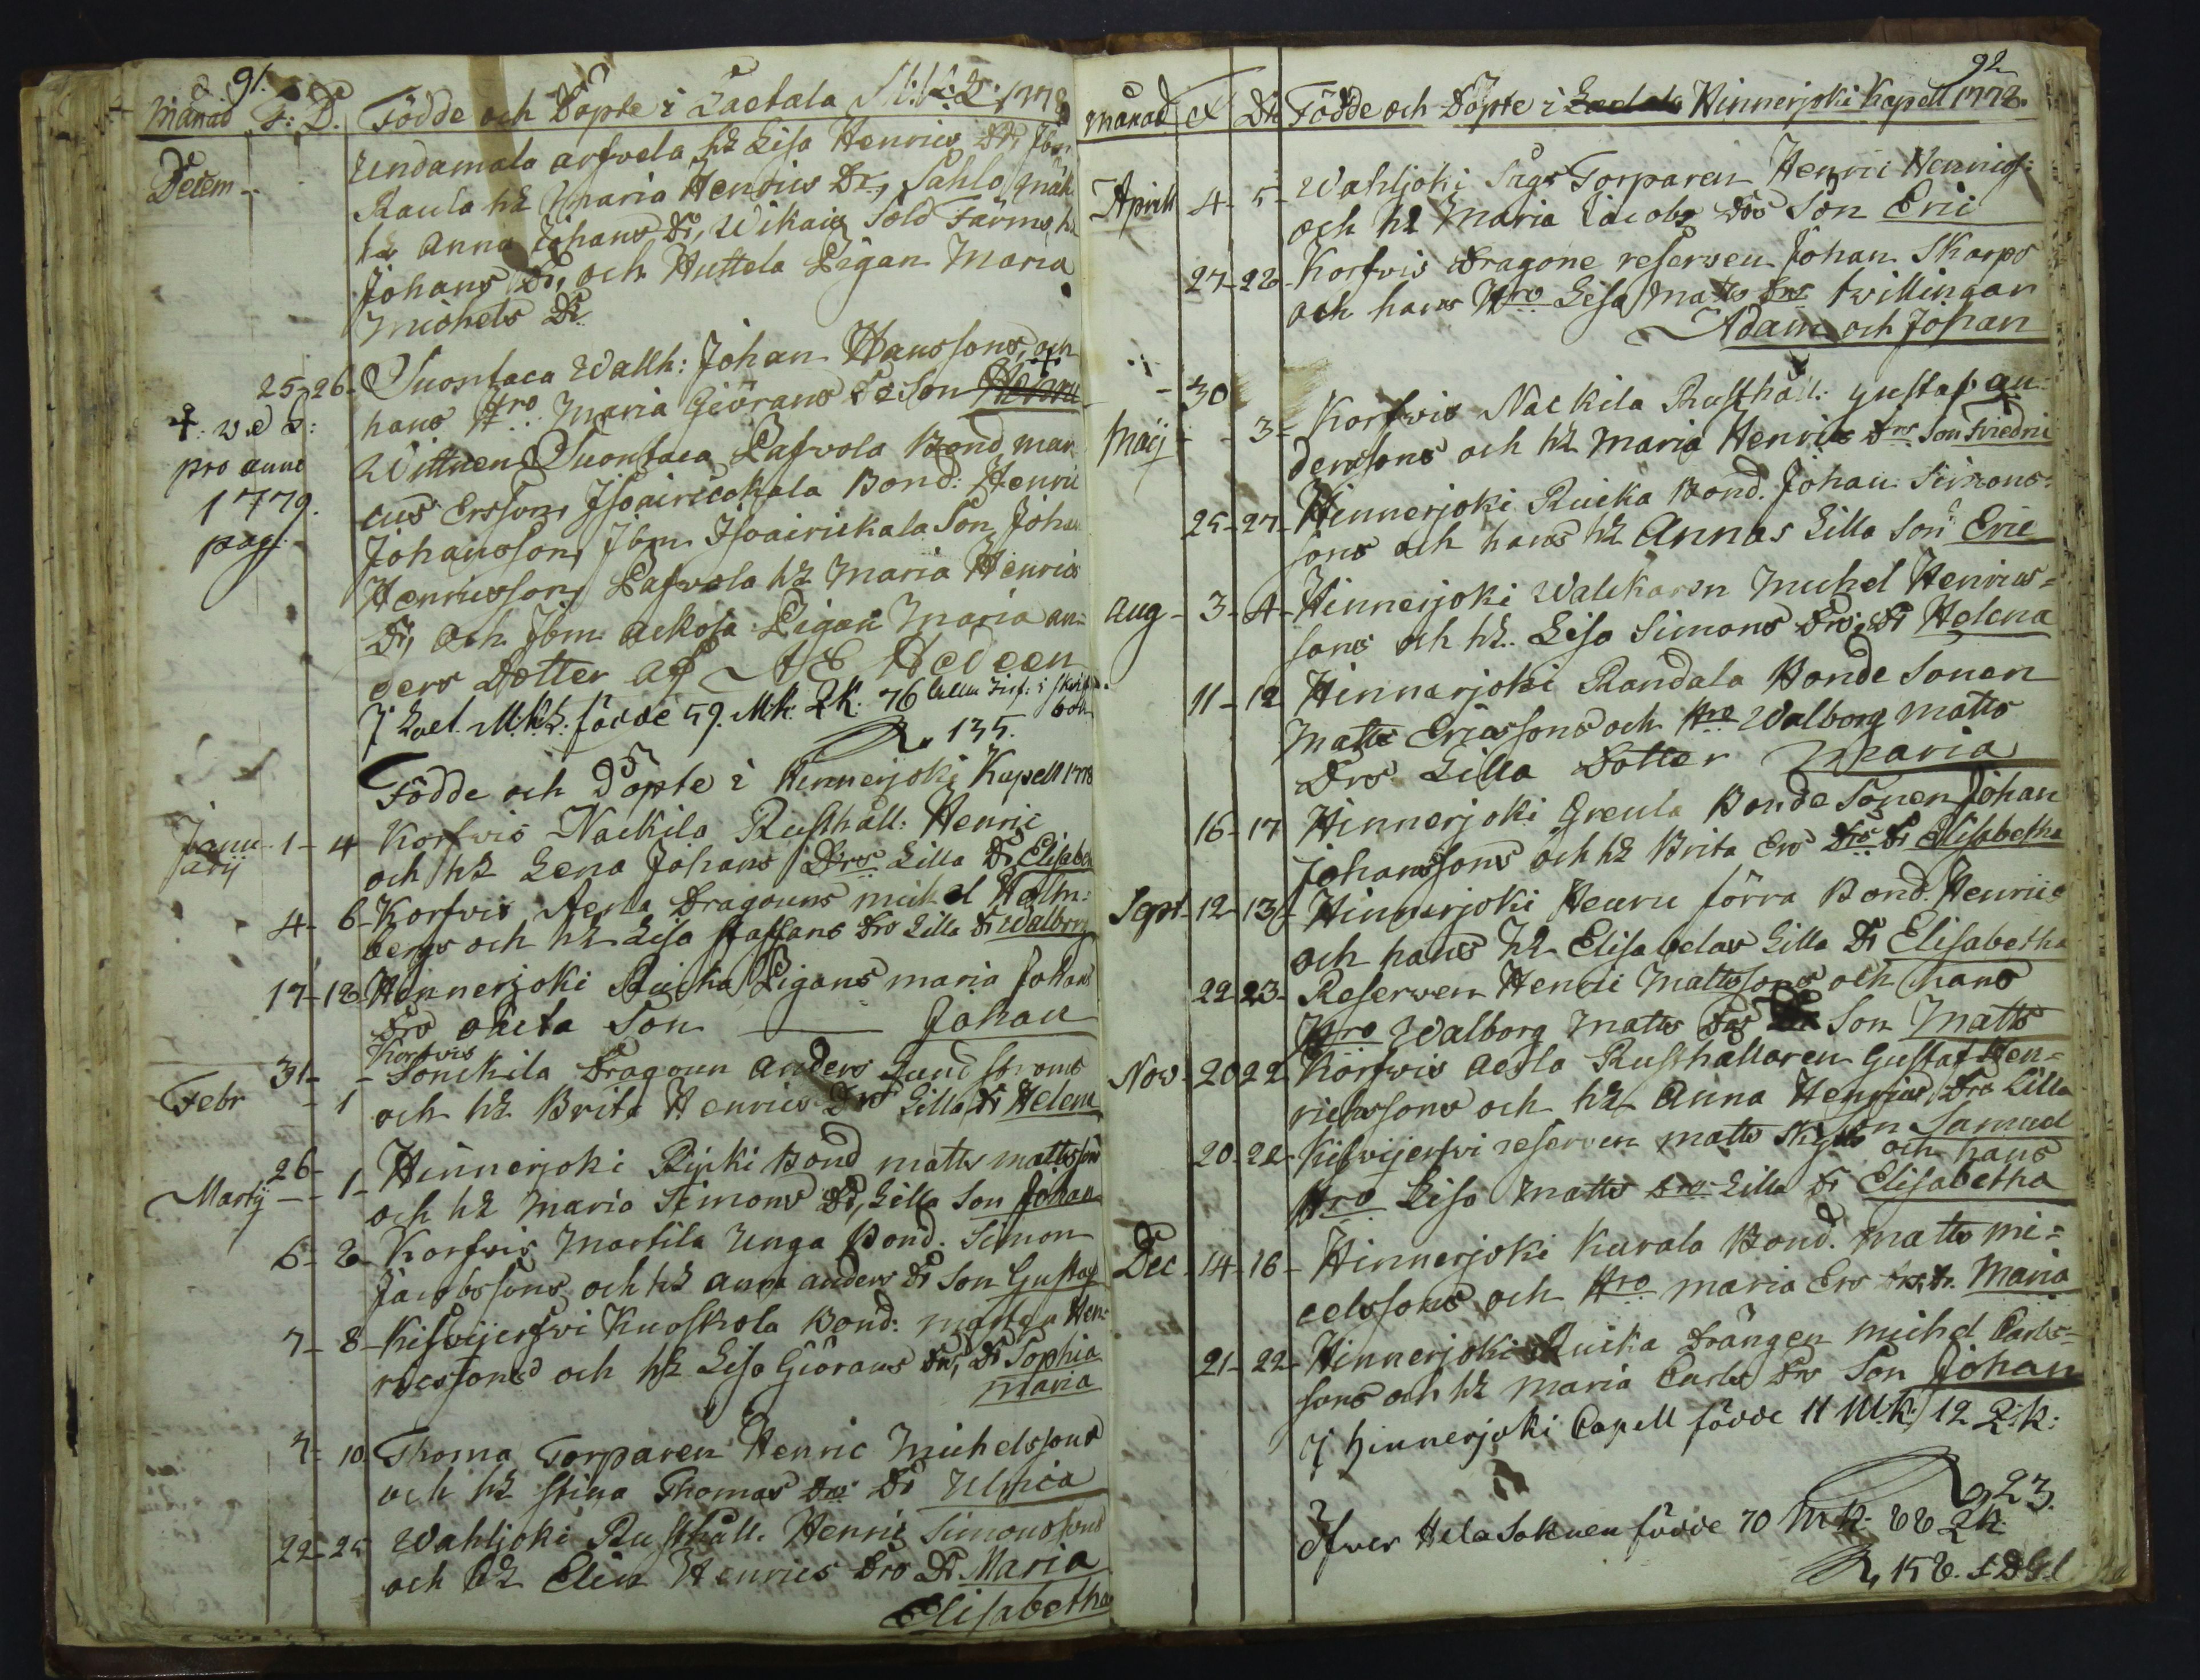 91.
Månad F: D. Födde och Döpte i Laetala M:k:L: 1778
Decem - Undamala arfvela hk Lisa Henrics Dr, Jbm
Raula hk Maria Henrics Dr, Sahlo
hk Anna Johans Dr, Wikais Sold Färms hk
Johans Dr, och Huttela Pigan Maria
Michels Dr
25-26- Suontaca Wallh: Johan Hanssons, och
hans Hro Maria Giörans Dr Son
Wittnen Suontaca Pafvola Bond Mar
cus Ersson, Isoairickala Bond: Henric
pro anno
1779.
pag.
Johansson, Jbm Isoairickala Son Johan
Henricsson, Pafvola hk Maria Henrics
Dr, och Jbm Ackosa Pigan Maria an
ders Dotter af A E Hedeen
J Laet. M.k.L: födde 59. M.k. 2K. 76
135.
Födde och Döpte i Hinnerjoki Kapell 1778
Janu
arij - 1 - 4 Korfvis Nackila Rusthåll: Henric
och hk Lena Johans Drs Lilla Dr Elisabe
4- 6- Korfvis Aerla Dragouns Michel Holm:
bergs och hk Lisa Staffans Drs Lilla Dr Walborg
17-18- Hinnerjoki Ruicka Pigans Maria Johans
Drs oäkta Son Johan
Korfvis
31- - Sonckila Dragoun Anders Lundströms
Febr - 1 och hk Brita Henrics Drs Lilla Dr Helena
26-
Martij - - 1- Hinnerjoki Ripki Bond Matts Mattsson
och hk Maria Simons Dr, Lilla Son Johan
6- 8- Korfvis Martila Unga Bond. Simon
Jacobssons och hk Anna Anders Dr Son Gustaf
7- 8- Kisvijerfvi Kuoskola Bond: Mårten Hen:
ricssons och hk Lisa Giörans Drs, Dr Sophia
Maria
7- 10. Thoma Torparen Henric Michelssons
och hk Stina Thomas Drs Dr Ulrica
22-25 Wahljoki Rusthåll. Henric Simonssons
och hk Elin Henrics Drs Dr Maria
Elisabetha
92
Månad F Dr Födde och Döpte i Laetala Hinnerjoki Kapell 1778.
Aprill 4- 5- Wahljoki Srgs Torparen Henric Henrics:
och hk Maria Jacobs Drs Son Eric
27-28- Korfvis Dragone reserven Johan Skarps
och hans Hro Lisa Matts Drs twillingar
Adam och Johan
- 30
Maij - - 3- Korfvis Nackila Rusthåll: Gustaf An-
derssons och hk Maria Henrics Drs Son Friedric
25-27- Hinnerjoki Ruicka Bond. Johan Simons:
sons och hans hk Annas Lilla Son Eric
Aug - 3- 4- Hinnerjoki Walckaren Michel Henrics=
sons och hk. Lisa Simons Drs, Dr Helena
11-12 Hinnerjoki Randala Bonde Sonen
Matts Ericssons och Hro Walborg Matts
Drs Lilla Dotter Maria
16-17 Hinnerjoki Greula Bonde Sonen Johan
Johanssons och hk Brita Ers Drs Dr Elisabetha
Sept-12-13- Hinnerjoki Heuru förra Bond. Henrics
och hans hk Elisabetas Lilla Dr Elisabetha
22-23- Reserven Henric Mattssons och hans
Hro Walborg Matts Drs Son Matts
Nov-20-22 Korfvis Aerla Rusthållaren Gustaf Hen=
ricssons och hk Anna Henrics Drs Lilla
Son Samuel
20-22- Kisvijerfvi reserven Matts och hans
Hro Lisa Matts Drs Lilla Dr Elisabetha
Dec-14-16- Hinnerjoki Kurala Bond. Matts Mi=
celssons och Hro Maria Ers Drs Dr. Maria
21-22- Hinnerjoki Ruicka Drängen Michel Carls=
sons och hk Maria Carls Drs Son Johan
J Hinnerjoki Capell födde 11 M:k: 12 Q:k:
23.
Öfver Hela Soknen födde 70 M:k: 88 Q:k:
158.